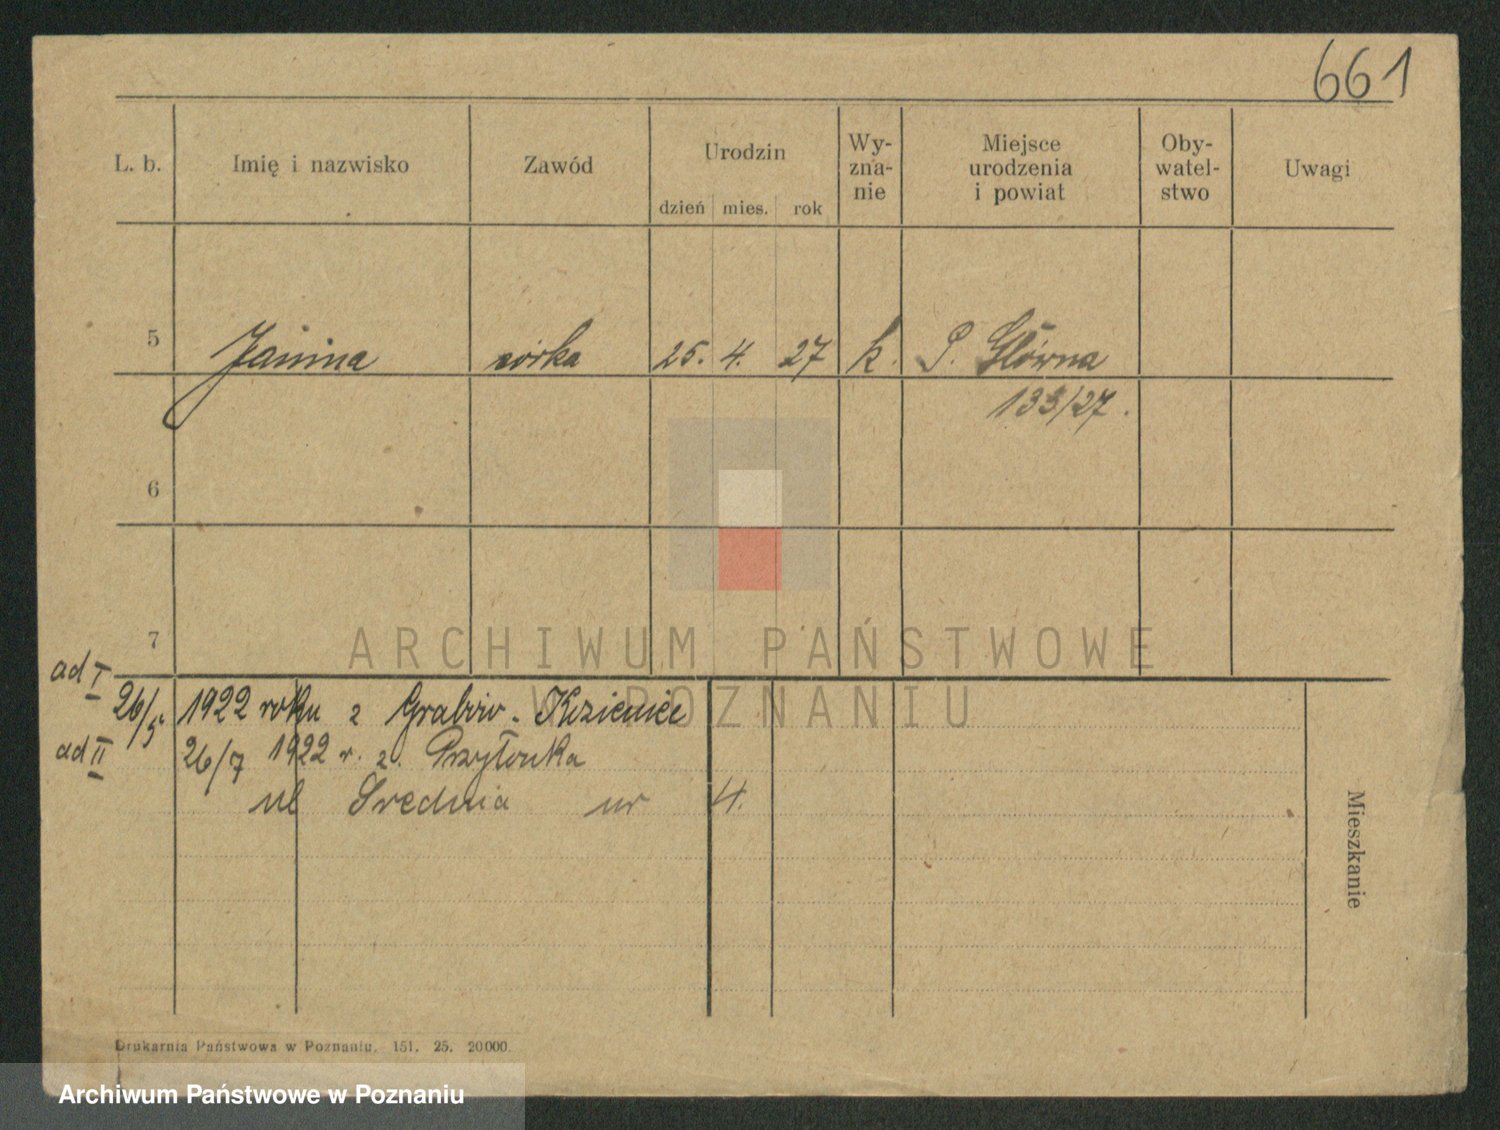 661
L. b. Imię i nazwisko Zawód Urodzin Wy-zna-nie Miejsce urodzenia i powiat Oby-watel-stwo Uwagi
dzień mies. rok
5 Janina córka 25. 4. 27 k. P. Główna
133/27.
6
7
ARCHIWUM PAŃSTWOWE
W POZNANIU
ad I 26/5 1922 roku z Grabów - Kozienice
ad II 26/7 1922 r. z. Przyłonka
ul Średnia nr 4.
Mieszkanie
Drukarnia Państwowa w Poznaniu. 151. 25. 20000.
Archiwum Państwowe w Poznaniu